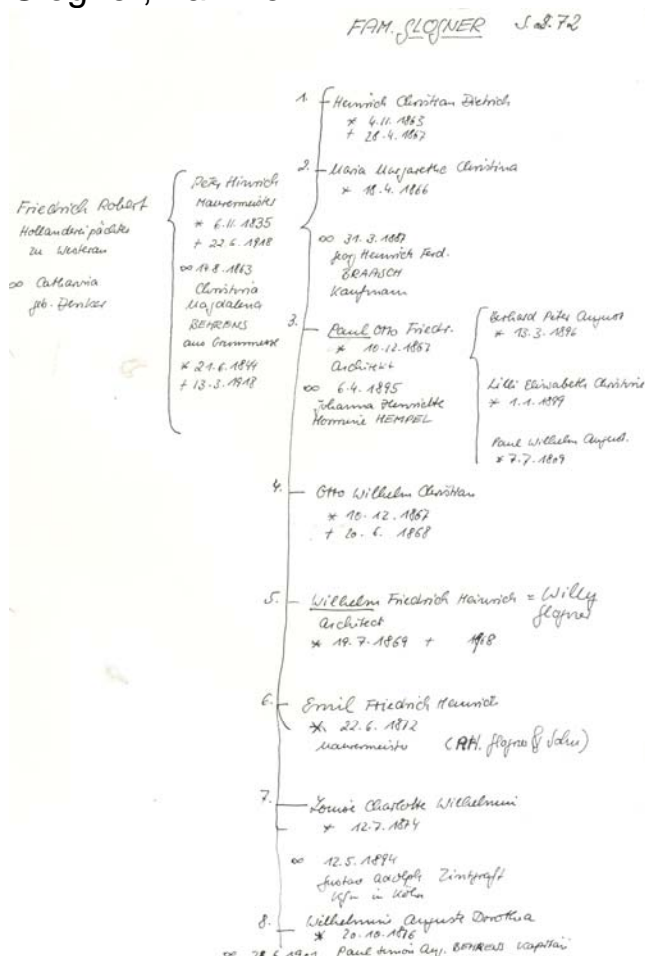 FAM. GLOGNER
Friedrich Robert
Holländereipächter
zu Westerau
∞ Catharina
geb. Denker
Peter Hinrich
Maurermeister
* 6.11.1835
+ 22.6.1918
∞ 14.8.1863
Christina
Magdalena
BEHRENS
aus Grummesse
* 21.6.1844
+ 13.3.1918
1. Heinrich Christian Dietrich
* 4.11.1863
+ 28.4.1867
2. Maria Margarethe Christina
* 18.4.1866
∞ 31.3.1887
Georg Heinrich Ferd.
BRAASCH
Kaufmann
3. Paul Otto Friedr.
* 10.12.1867
Architekt
∞ 6.4.1895
Johanna Henriette
Hermine HEMPEL
Gerhard Peter August
* 13.3.1896
Lilli Elisabeth Christine
* 1.1.1899
Paul Wilhelm August.
* 7.7.1809
4. Otto Wilhelm Christian
* 10.12.1867
+ 20.6.1868
5. Wilhelm Friedrich Heinrich = Willy
Glogner
Architect
* 19.7.1869 + 1968
6. Emil Friedrich Heinrich
* 22.6.1872
Maurermeister (P.H. Glogner & Sohn)
7. Louise Charlotte Wilhelmine
* 12.7.1874
∞ 12.5.1894
Gustav Adolph Zintgraff
Kfm in Köln
8. Wilhelmine Auguste Dorothea
* 20.10.1876
∞ 28.6.1901 Paul Simon Aug. BEHRENS Kapitän